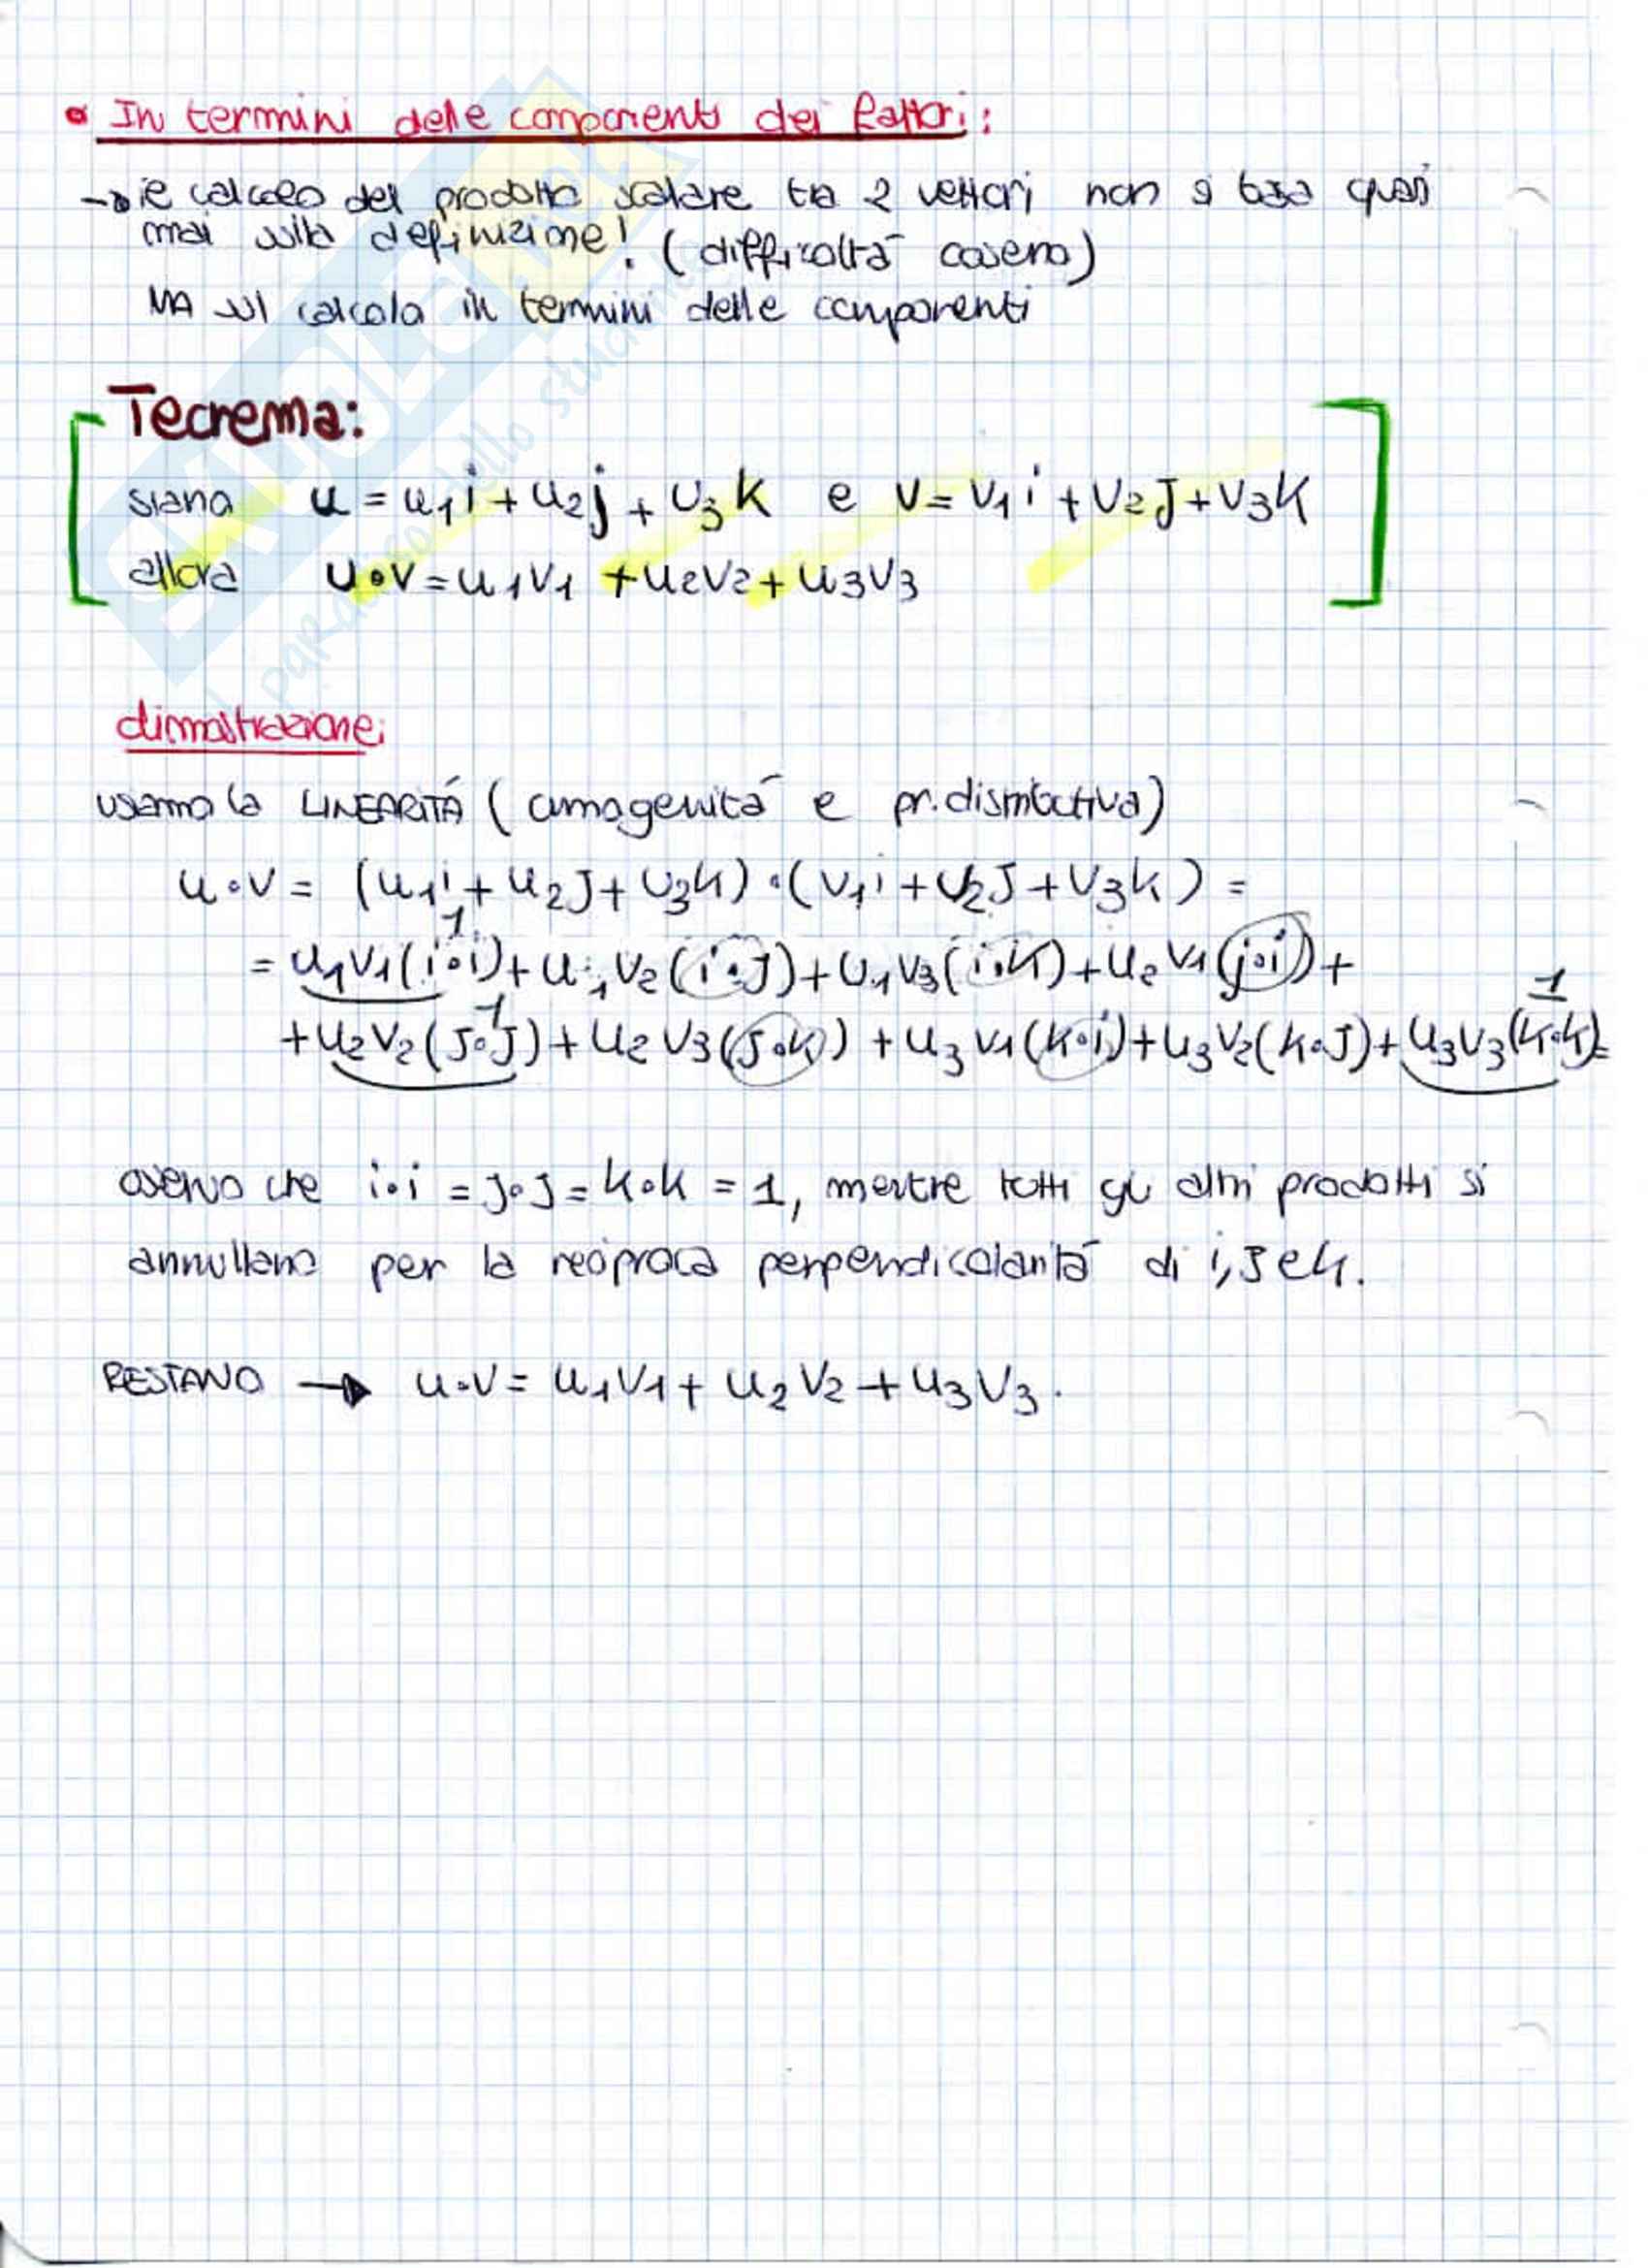 • In termini delle componenti dei fattori:
→ il calcolo del prodotto scalare tra 2 vettori non si basa quasi
mai sulla definizione! (difficoltà coseno)
MA sul calcolo in termini delle componenti
Teorema:
siano u = u₁i + u₂j + u₃k e v = v₁i + v₂j + v₃k
allora u•v = u₁v₁ + u₂v₂ + u₃v₃
dimostrazione:
usiamo la LINEARITÁ (omogeneità e pr. distributiva)
u•v = (u₁i + u₂j + u₃k) • (v₁i + v₂j + v₃k) =
1
= u₁v₁(i•i) + u₁v₂(i•j) + u₁v₃(i•k) + u₂v₁(j•i) +
1 1
+ u₂v₂(j•j) + u₂v₃(j•k) + u₃v₁(k•i) + u₃v₂(k•j) + u₃v₃(k•k) =
osservo che i•i = j•j = k•k = 1, mentre tutti gli altri prodotti si
annullano per la reciproca perpendicolarità di i, j e k.
RESTANO → u•v = u₁v₁ + u₂v₂ + u₃v₃.